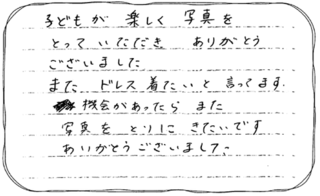 子どもが 楽しく 写真を
とって いただき ありがとう
ございました
また ドレス 着たいと 言ってます.
機会があったら また
写真を とりに きたいです
ありがとうございました.